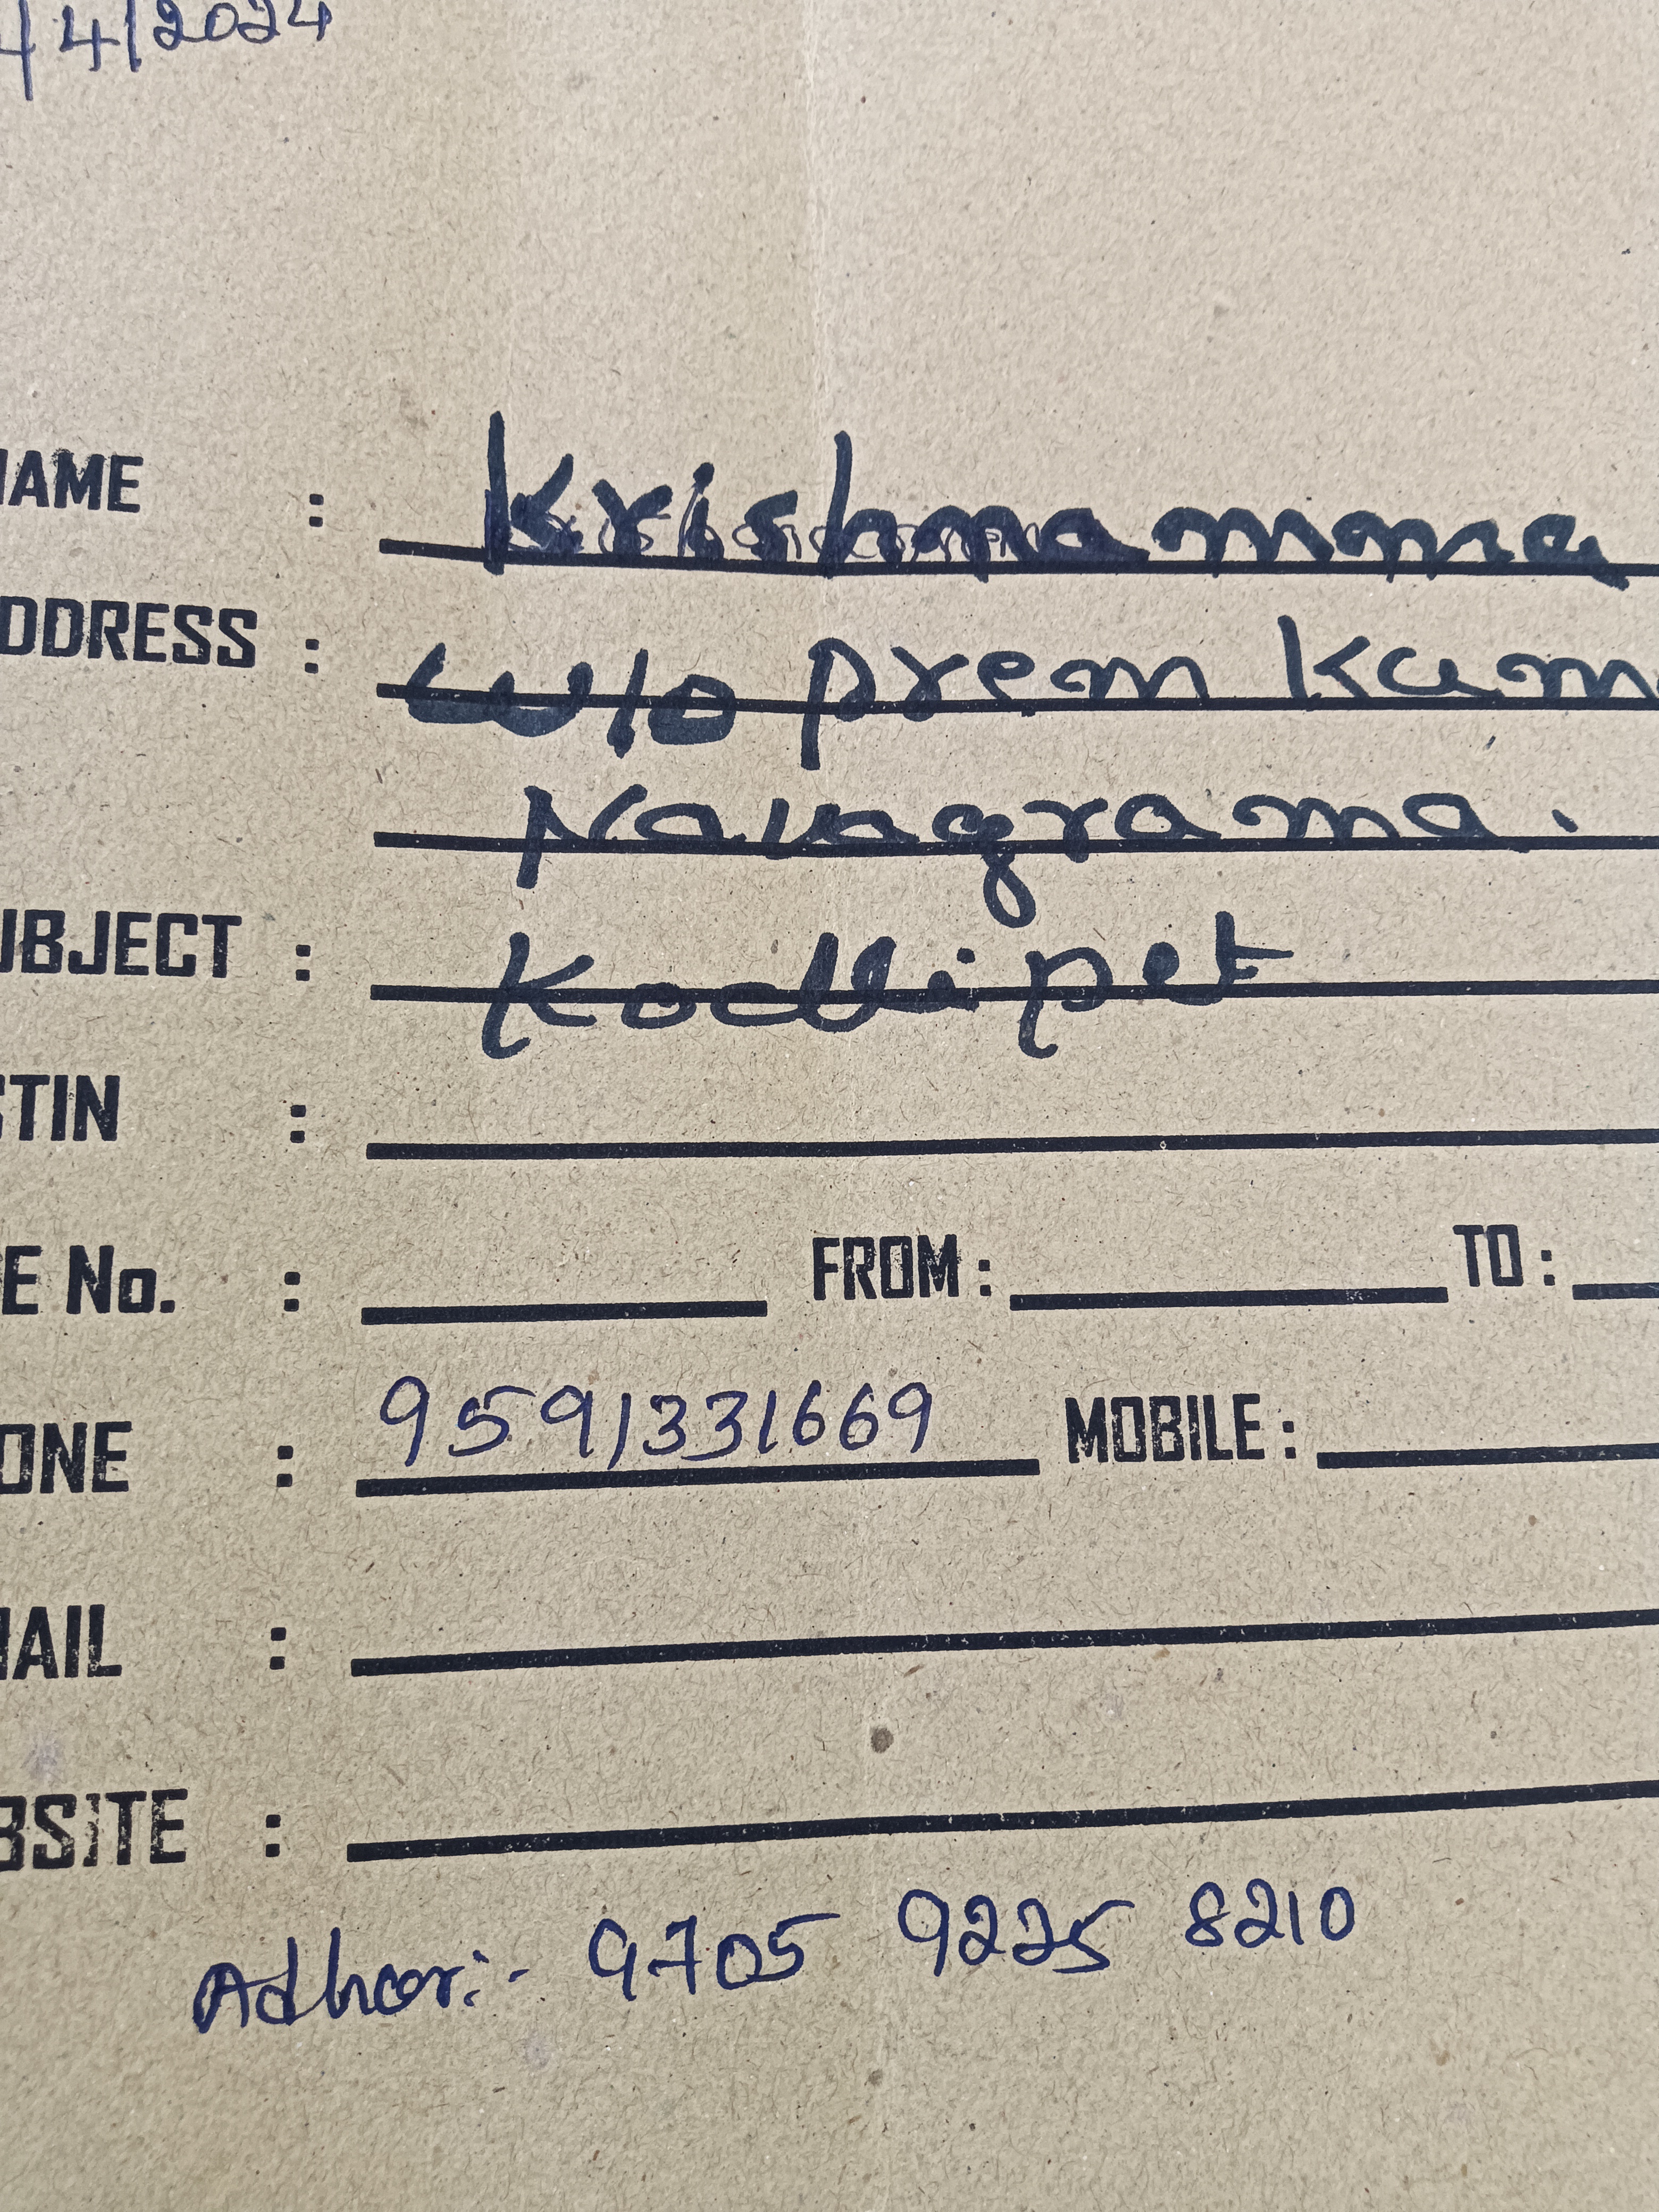 /4/2024
NAME : Krishnamma
ADDRESS : W/o Prem Kum
Navagrama.
SUBJECT : Kodlipet
STIN :
E No. : FROM : TO :
ONE : 9591331669 MOBILE :
MAIL :
BSITE :
Adhar:- 9705 9225 8210